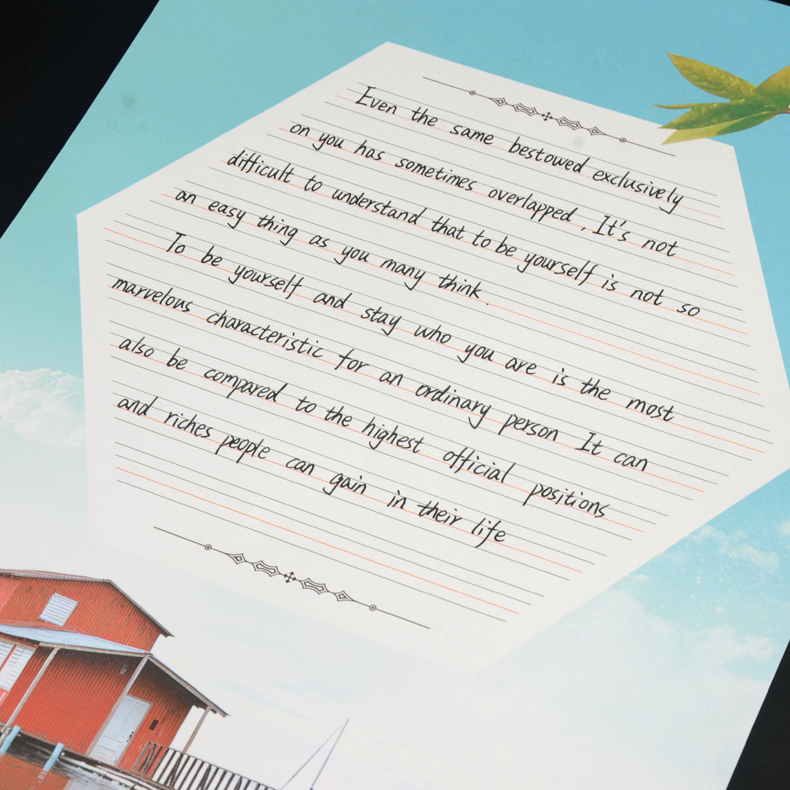 Even the same bestowed exclusively
on you has sometimes overlapped , It's not
difficult to understand that to be yourself is not so
an easy thing as you many think.
To be yourself and stay who you are is the most
marvelous characteristic for an ordinary person It can
also be compared to the highest official positions
and riches people can gain in their life